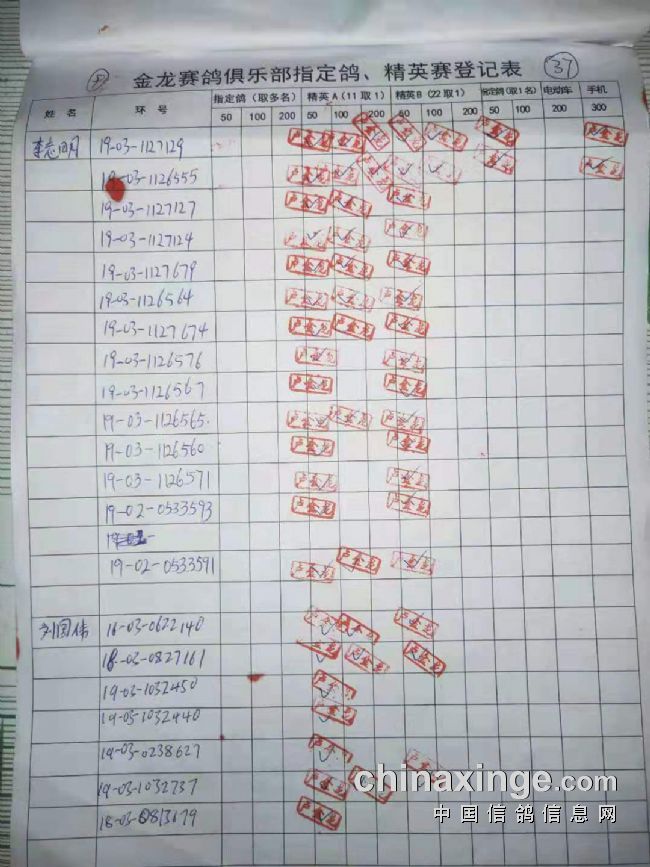 8
金龙赛鸽俱乐部指定鸽、精英赛登记表
37
姓名 环号 指定鸽（取多名） 精英A(11取1) 精英B(22取1) 指定鸽(取1名) 电动车 手机
50 100 200 50 100 200 50 100 200 50 100 200 300
李志明 19-03-1127129
19-03-1126555
19-03-1127127
19-03-1127124
19-03-1127679
19-03-1126564
19-03-1127674
19-03-1126576
19-03-1126567
19-03-1126565.
19-03-1126560
19-03-1126571
19-02-0533593
19-02-0533591
刘国伟 16-03-0622140
18-03-0827161
19-03-1032450
19-03-1032440
19-03-0238627
19-03-1032737
18-03-0813179
卢金龙
chinaxinge.com
中国信鸽信息网